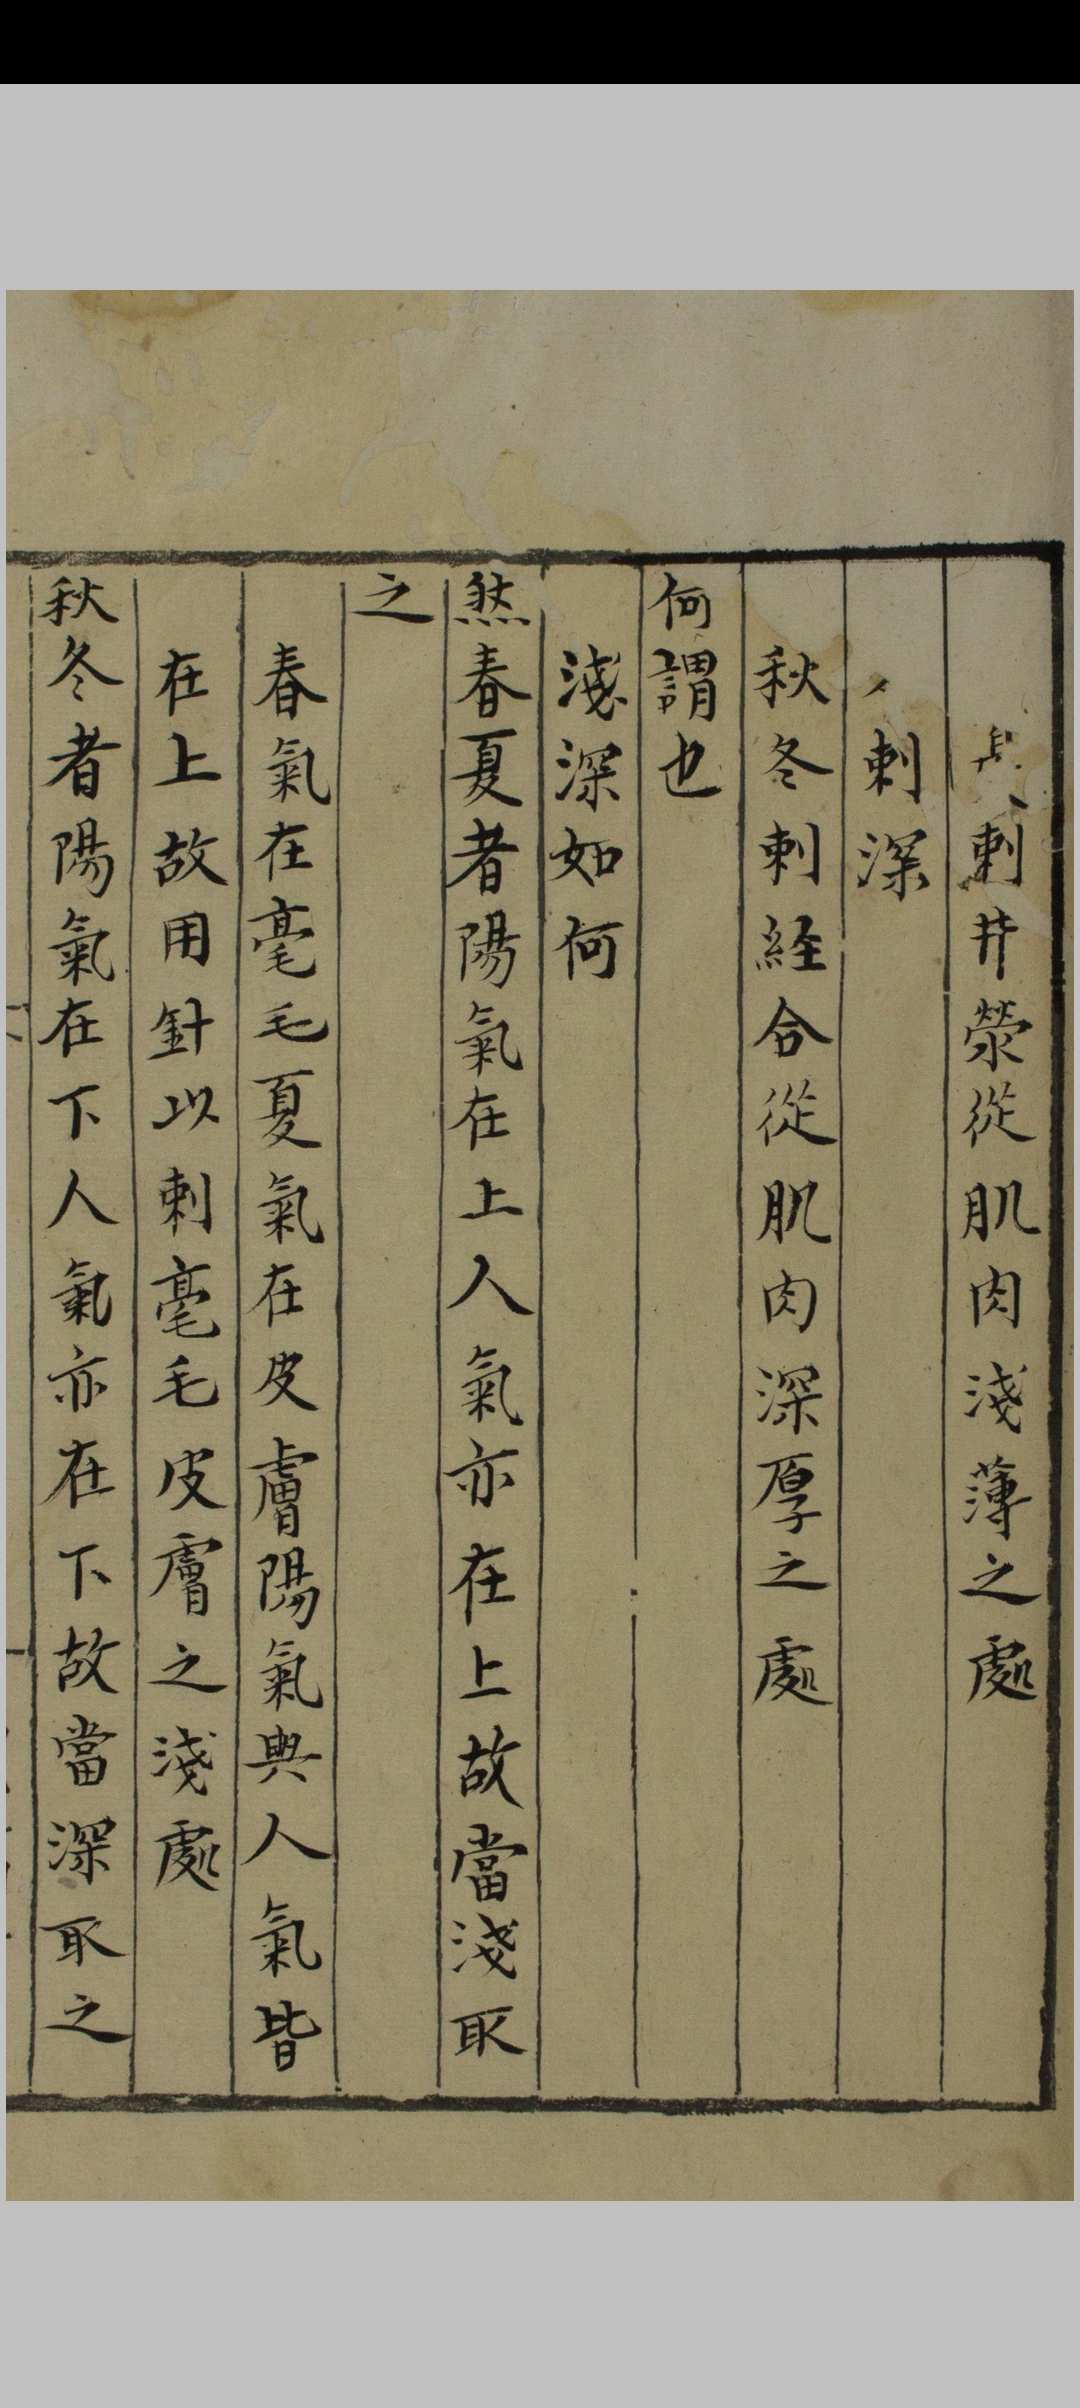 刺井滎從肌肉淺薄之處
刺深
秋冬刺経合從肌肉深厚之處
何謂也
淺深如何
然春夏者陽氣在上人氣亦在上故當淺取
之
春氣在毫毛夏氣在皮膚陽氣與人氣皆
在上故用針以刺毫毛皮膚之淺處
秋冬者陽氣在下人氣亦在下故當深取之